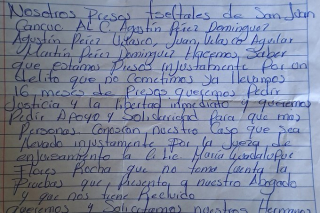 Nosotros Presos tseltales de San Juan
Cancuc A.L.C. Agustín Pérez Domínguez
Agustín Pérez Velasco, Juan Velasco Aguilar
Martín Pérez Domínguez Hacemos Saber
que estamos Presos injustamente Por un
delito que no Cometimos ya llevamos
16 meses de Presos queremos Pedir
Justicia y la libertad inmediato y queremos
Pedir Apoyo y Solidaridad Para que mas
Personas Conoscan nuestro Caso que sea
llevado injustamente Por la Jueza de
enjuiciamiento la Lic María Guadalupe
Flores Rocha que no toma Cuenta la
Pruebas que Presento a nuestro Abogado
y que nos tiene Recluido
queremos y Solicitamos nuestros Hermanos